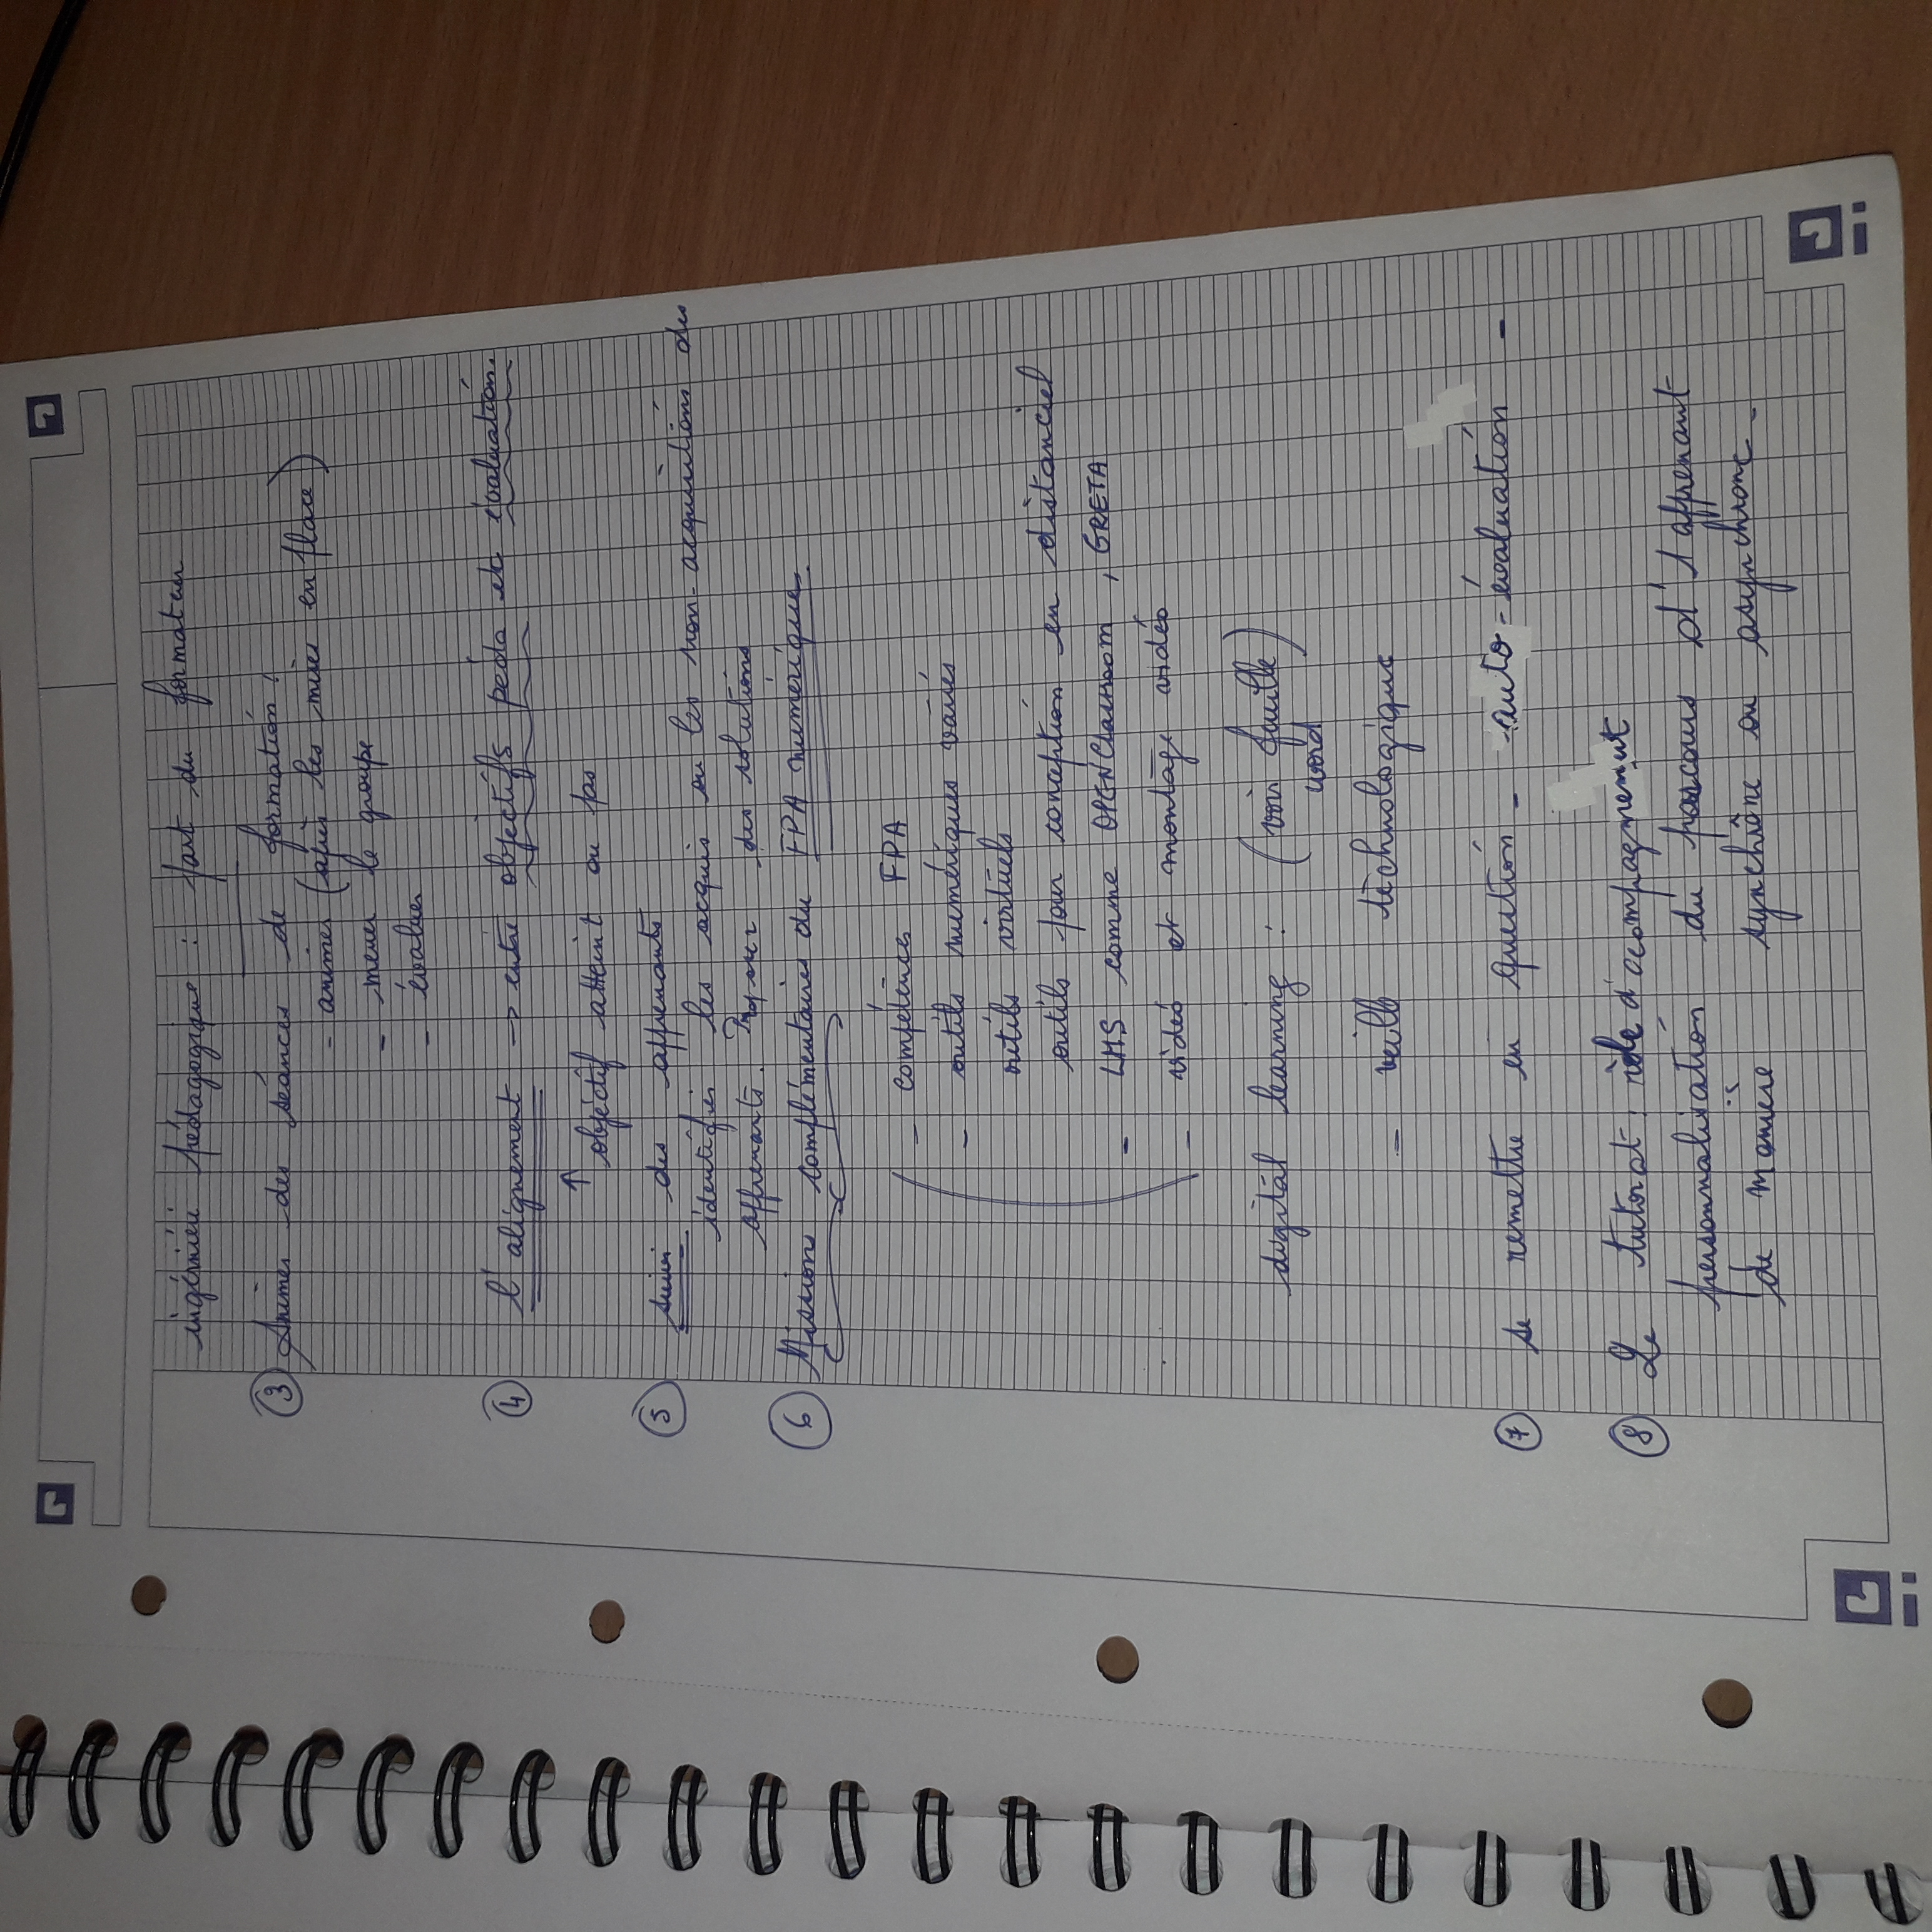 ingénierie pédagogique : part du formateur
③ Animer des séances de formation :
- animer (après les mises en place)
- mener le groupe
- évaluer
④ l'alignement → entre objectifs péda et évaluation.
↑ objectif atteint ou pas
⑤ suivi des apprenants
identifier les acquis ou les non-acquisitions des
apprenants. Proposer des solutions
⑥ Missions complémentaires du FPA numérique
- compétences FPA
- outils numériques variés
outils virtuels
outils pour conception en distanciel
- LMS comme OPENClassroom, GRETA
- vidéo et montage vidéo
digital learning : (voir feuille)
word
- veille technologique
⑦ se remettre en question - auto-évaluation -
⑧ Le tutorat : rôle d'acompagnement
personnalisation du parcours d'1 apprenant
de manière synchrône ou asynchrone